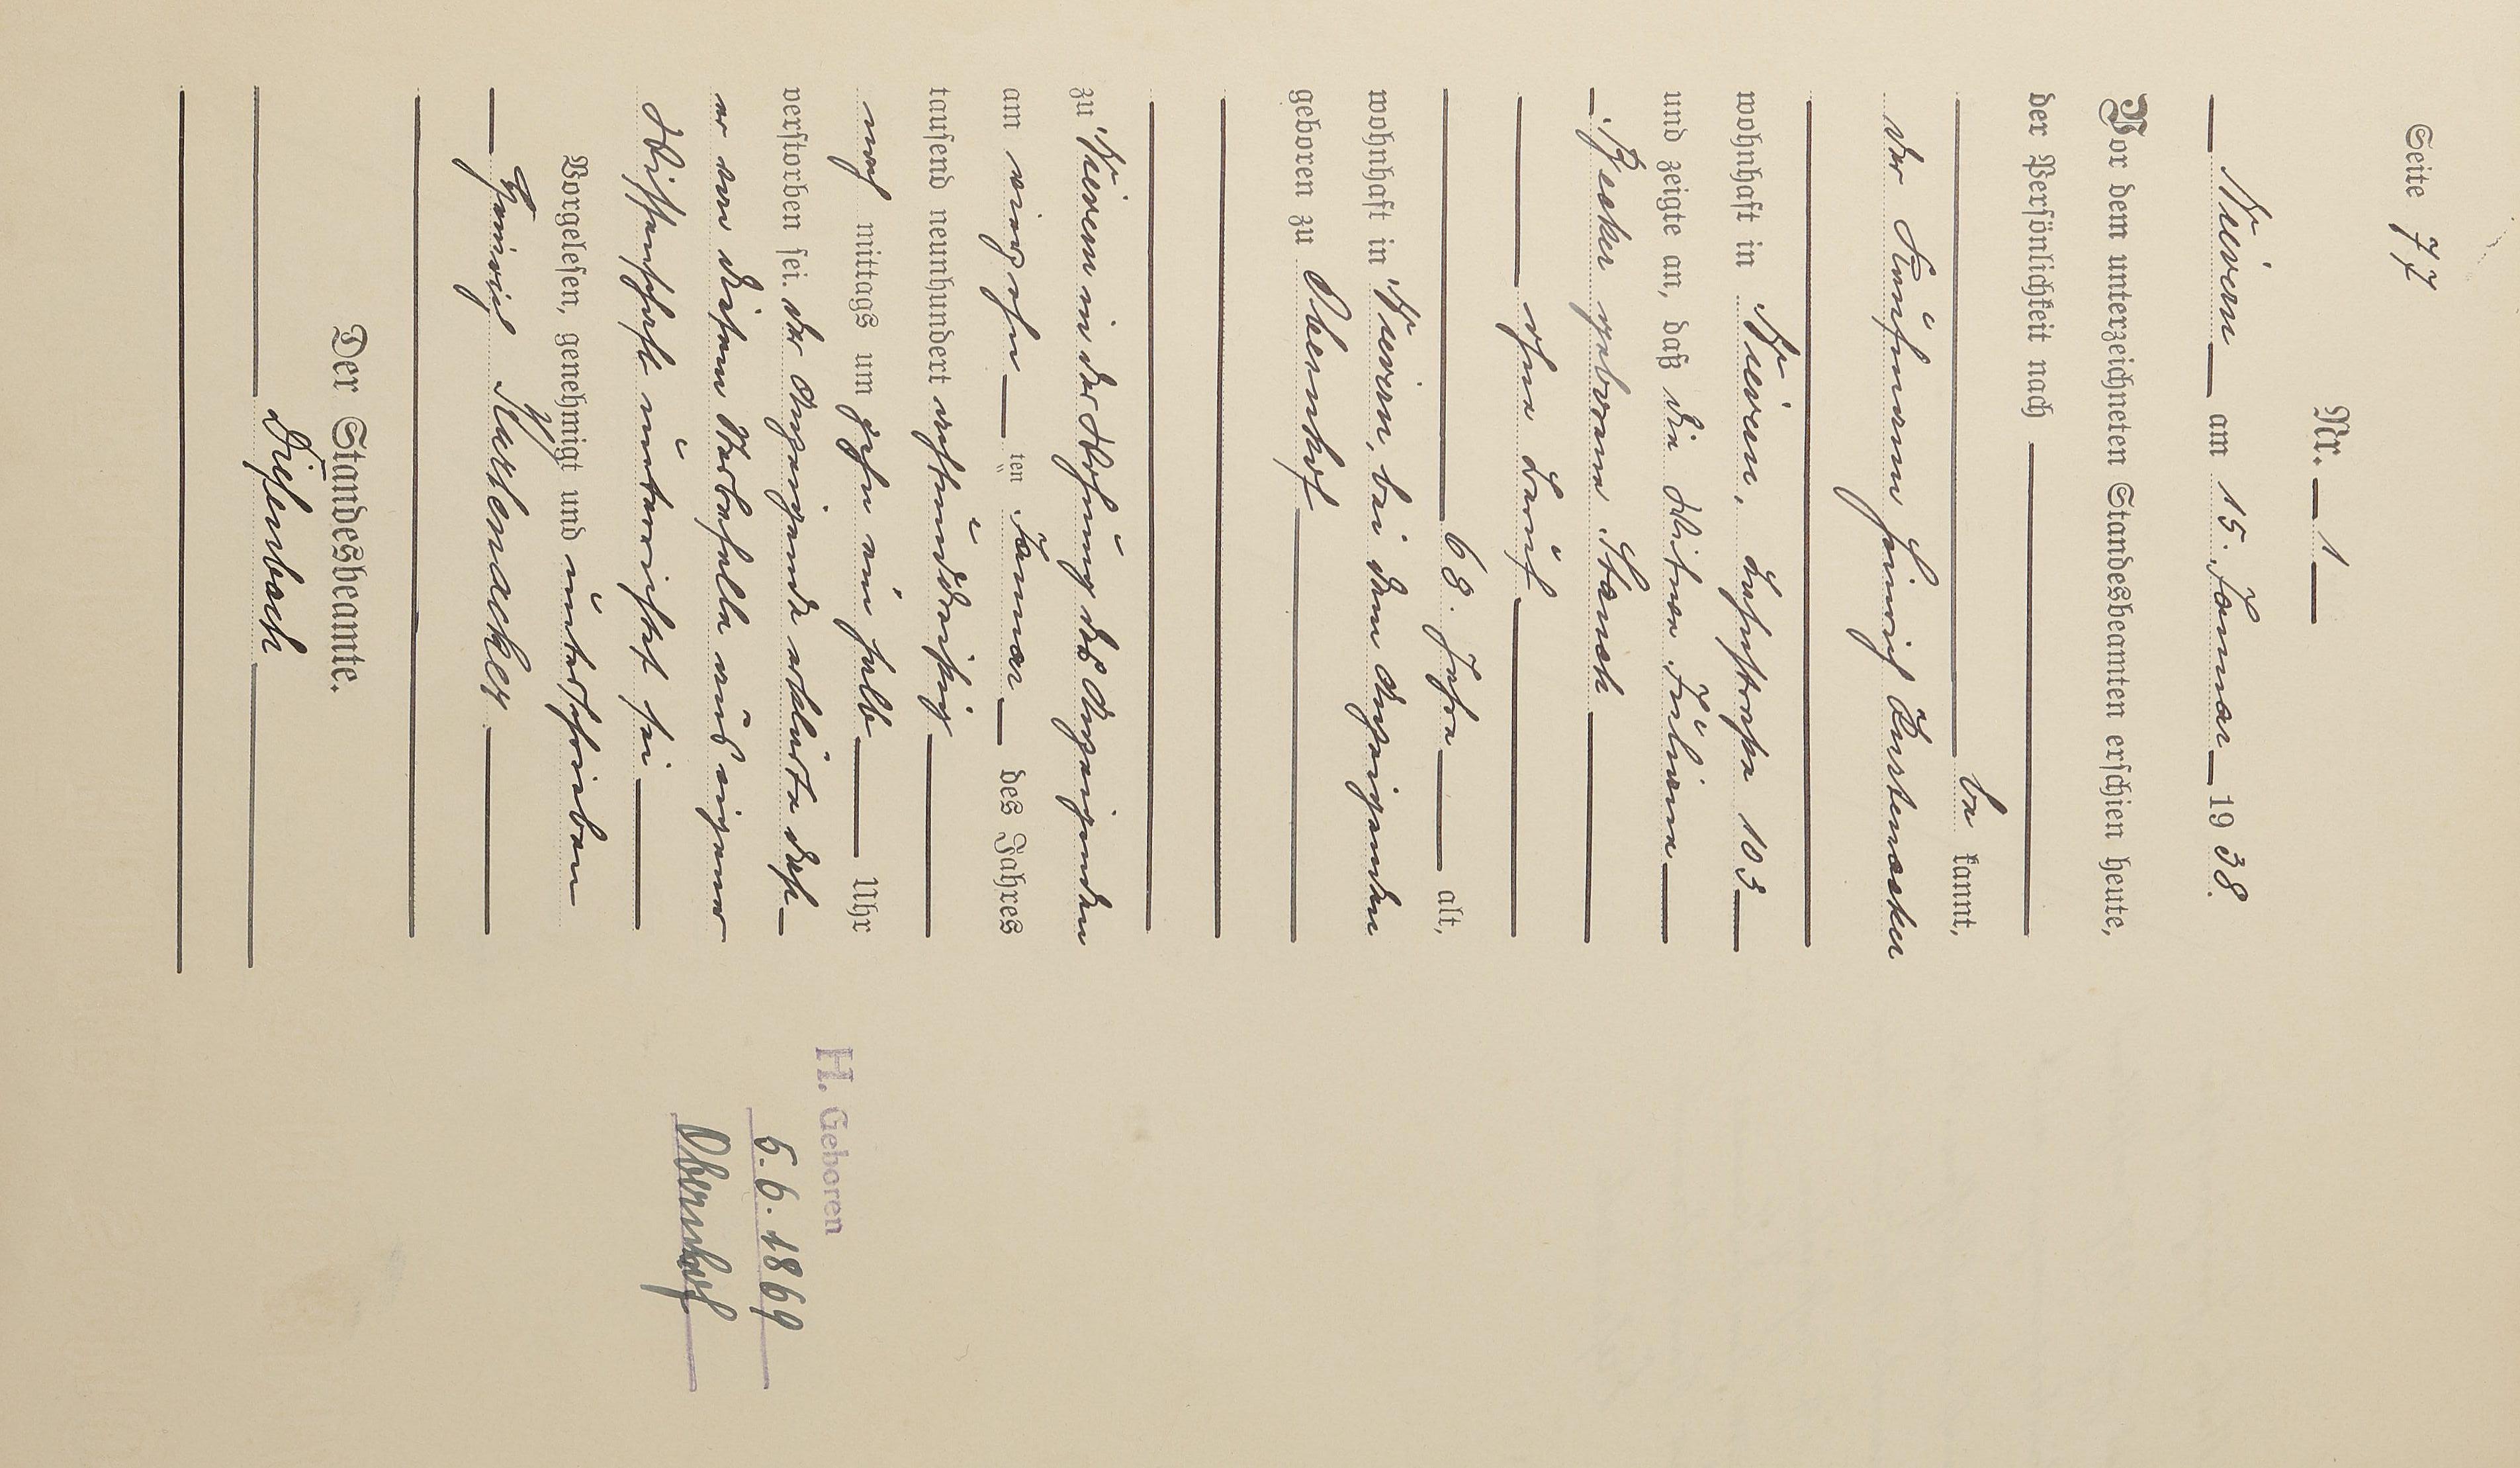 Seite 77
Nr. 1
Nievern am 15. Januar 1938.
Vor dem unterzeichneten Standesbeamten erschien heute,
der Persönlichkeit nach
be kannt,
der Kaufmann Heinrich
wohnhaft in Nievern, 103
und zeigte an, daß die Witwe Juliana
Becker geborene
ohne Beruf
68 Jahre alt,
wohnhaft in Nievern, bei dem Anzeigenden
geboren zu Obernhof
zu Nievern in der Wohnung des Anzeigenden
am vierzehn ten Januar des Jahres
tausend neunhundert achtunddreißig
nach mittags um zehn ein halb Uhr
verstorben sei. Der Anzeigende erklärte daß
er von diesem Sterbefalle aus eigener
Wissenschaft unterrichtet sei
Vorgelesen, genehmigt und unterschrieben
Heinrich
Der Standesbeamte.
Diefenbach
H. Geboren
5.6.1869
Obernhof